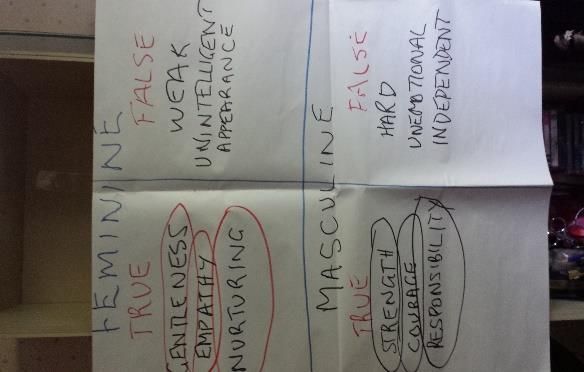 FEMININE
TRUE
GENTLENESS
EMPATHY
NURTURING
FALSE
WEAK
UNINTELLIGENT
APPEARANCE
MASCULINE
TRUE
STRENGTH
COURAGE
RESPONSIBILITY
FALSE
HARD
UNEMOTIONAL
INDEPENDENT